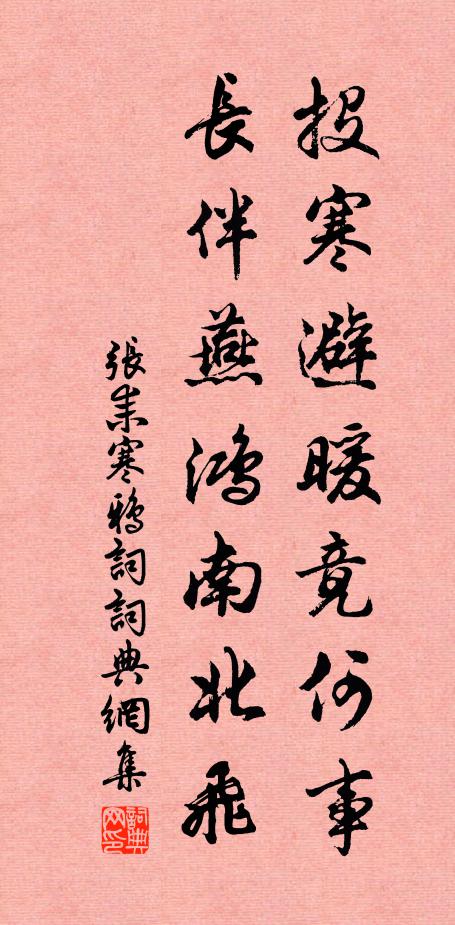 投寒避暖竟何事
長伴燕鴻南北飛
張耒寒鴉詞詞典網集
詞典网印